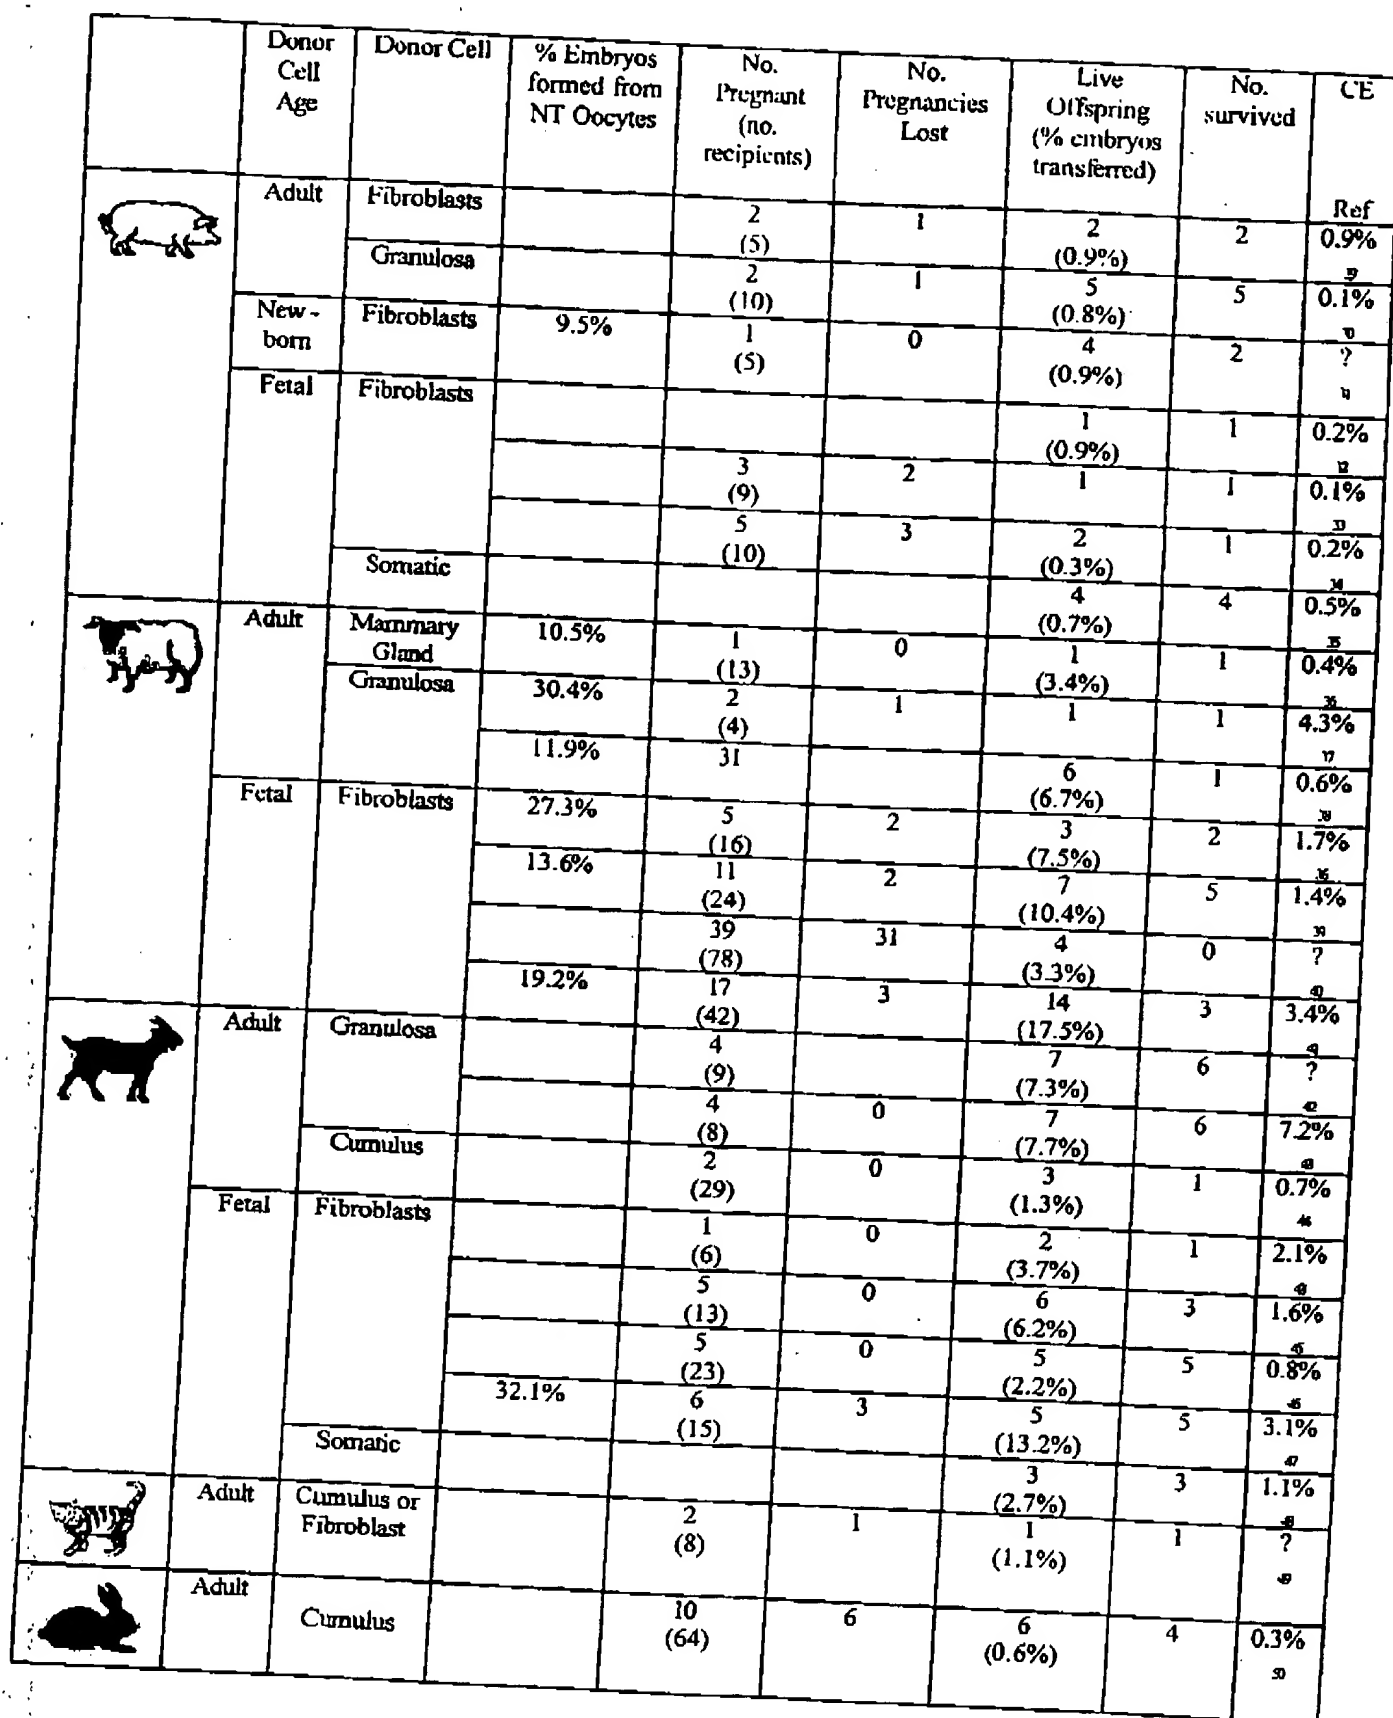 Donor Cell Age
Donor Cell
% Embryos formed from NT Oocytes
No. Pregnant (no. recipients)
No. Pregnancies Lost
Live Offspring (% embryos transferred)
No. survived
CE
Ref
Adult Fibroblasts 2 (5) 1 2 (0.9%) 2 0.9%
Granulosa 2 (10) 1 5 (0.8%) 5 0.1%
New-born Fibroblasts 9.5% 1 (5) 0 4 (0.9%) 2 ?
Fetal Fibroblasts 1 (0.9%) 1 0.2%
3 (9) 2 1 1 0.1%
5 (10) 3 2 (0.3%) 1 0.2%
Somatic 4 (0.7%) 4 0.5%
Adult Mammary Gland 10.5% 1 (13) 0 1 (3.4%) 1 0.4%
Granulosa 30.4% 2 (4) 1 1 1 4.3%
11.9% 31 6 (6.7%) 1 0.6%
Fetal Fibroblasts 27.3% 5 (16) 2 3 (7.5%) 2 1.7%
13.6% 11 (24) 2 7 (10.4%) 5 1.4%
39 (78) 31 4 (3.3%) 0 ?
19.2% 17 (42) 3 14 (17.5%) 3 3.4%
Adult Granulosa 4 (9) 7 (7.3%) 6 ?
4 (8) 0 7 (7.7%) 6 7.2%
Cumulus 2 (29) 0 3 (1.3%) 1 0.7%
Fetal Fibroblasts 1 (6) 0 2 (3.7%) 1 2.1%
5 (13) 0 6 (6.2%) 3 1.6%
5 (23) 0 5 (2.2%) 5 0.8%
32.1% 6 (15) 3 5 (13.2%) 5 3.1%
Somatic 3 (2.7%) 3 1.1%
Adult Cumulus or Fibroblast 2 (8) 1 1 (1.1%) 1 ?
Adult Cumulus 10 (64) 6 6 (0.6%) 4 0.3%
50